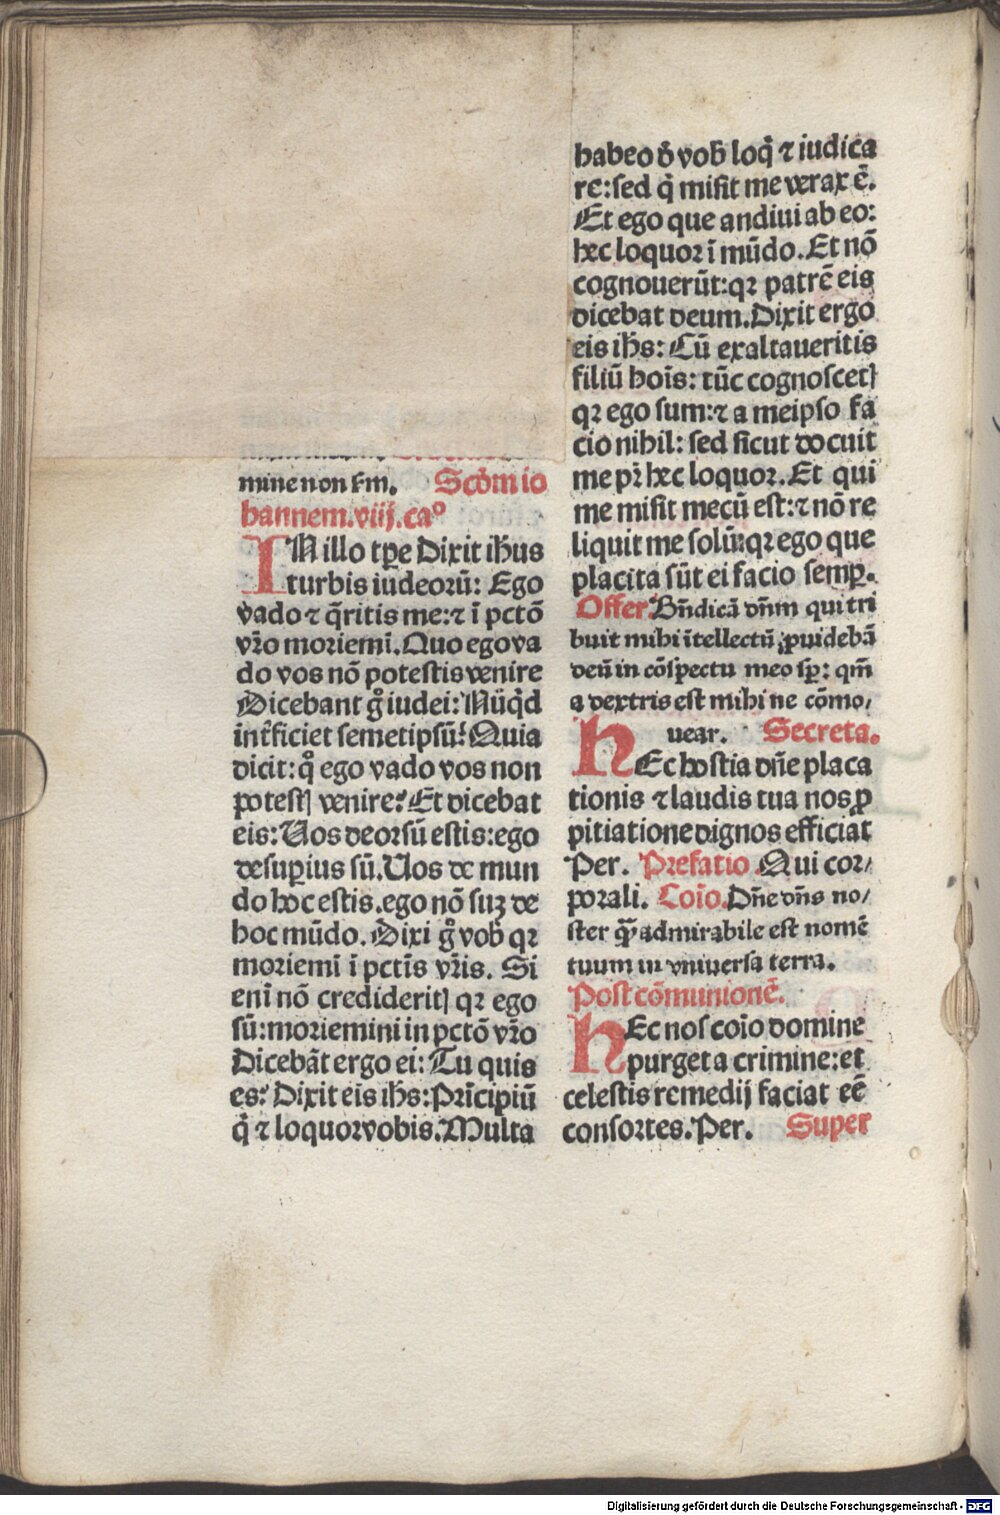 mine non km̄. Scd̄m io
hannem.viij.ca°
IN illo tp̄e Dixit ih̄us
turbis iudeorū: Ego
vado ⁊ q̄ritis me:⁊ ī pctō
vr̄o moriemī.Quo ego va
do vos nō potestis venire
Dicebant gͦ iudei: Nūq̇d
int̄ficiet semetipsū? Quia
dicit: qͦ ego vado vos non
potestꝭ venire? Et dicebat
eis: Uos deorsū estis: ego
de suꝑius sū. Uos de mun
do hoc estis. ego nō suꝫ de
hoc mūdo. Dixi gͦ vob̄ qꝛ
moriemī ī pctīs vr̄is. Si
enī nō credideritꝭ qꝛ ego
sū: moriemini in pctō vr̄o
Dicebāt ergo ei: Tu quis
es? Dixit eis ih̄s: Prīcipiū
q̇ ⁊ loquor vobis. Multa
habeo d̄ vob̄ loq̇ ⁊ iudica
re: sed q̇ misit me verax ē.
Et ego que andiui ab eo:
hec loquor ī mūdo. Et nō
cognouerūt: qꝛ patrē eis
dicebat deum. Dixit ergo
eis ih̄s: Cū exaltaueritis
filiū hoīs: tūc cognoscetꝭ
qꝛ ego sum: ⁊ a meipso fa
cio nihil: sed sicut docuit
me pr̄ hec loquor. Et qui
me misit mecū est: ⁊ nō re
liquit me solū: qꝛ ego que
placita sūt ei facio semꝑ.
Offer. Bn̄dicā dn̄m qui tri
buit mihi ītellectū ꝓuidebā
deū in cōspectu meo sꝑ: qm̄
a dextris est mihi ne cōmo/
uear. Secreta.
HEc hostia dn̄e placa
tionis ⁊ laudis tua nos ꝓ
pitiatione dignos efficiat
Per. Prefatio. Qui cor/
porali. Coīo. Dn̄e dn̄s no/
ster q̄ꝫ admirabile est nomē
tuum in vniuersa terra.
Post cōmunionē.
HEc nos coīo domine
purget a crimine: et
celestis remedij faciat eē
consortes. Per. Super
Digitalisierung gefördert durch die Deutsche Forschungsgemeinschaft - DFG